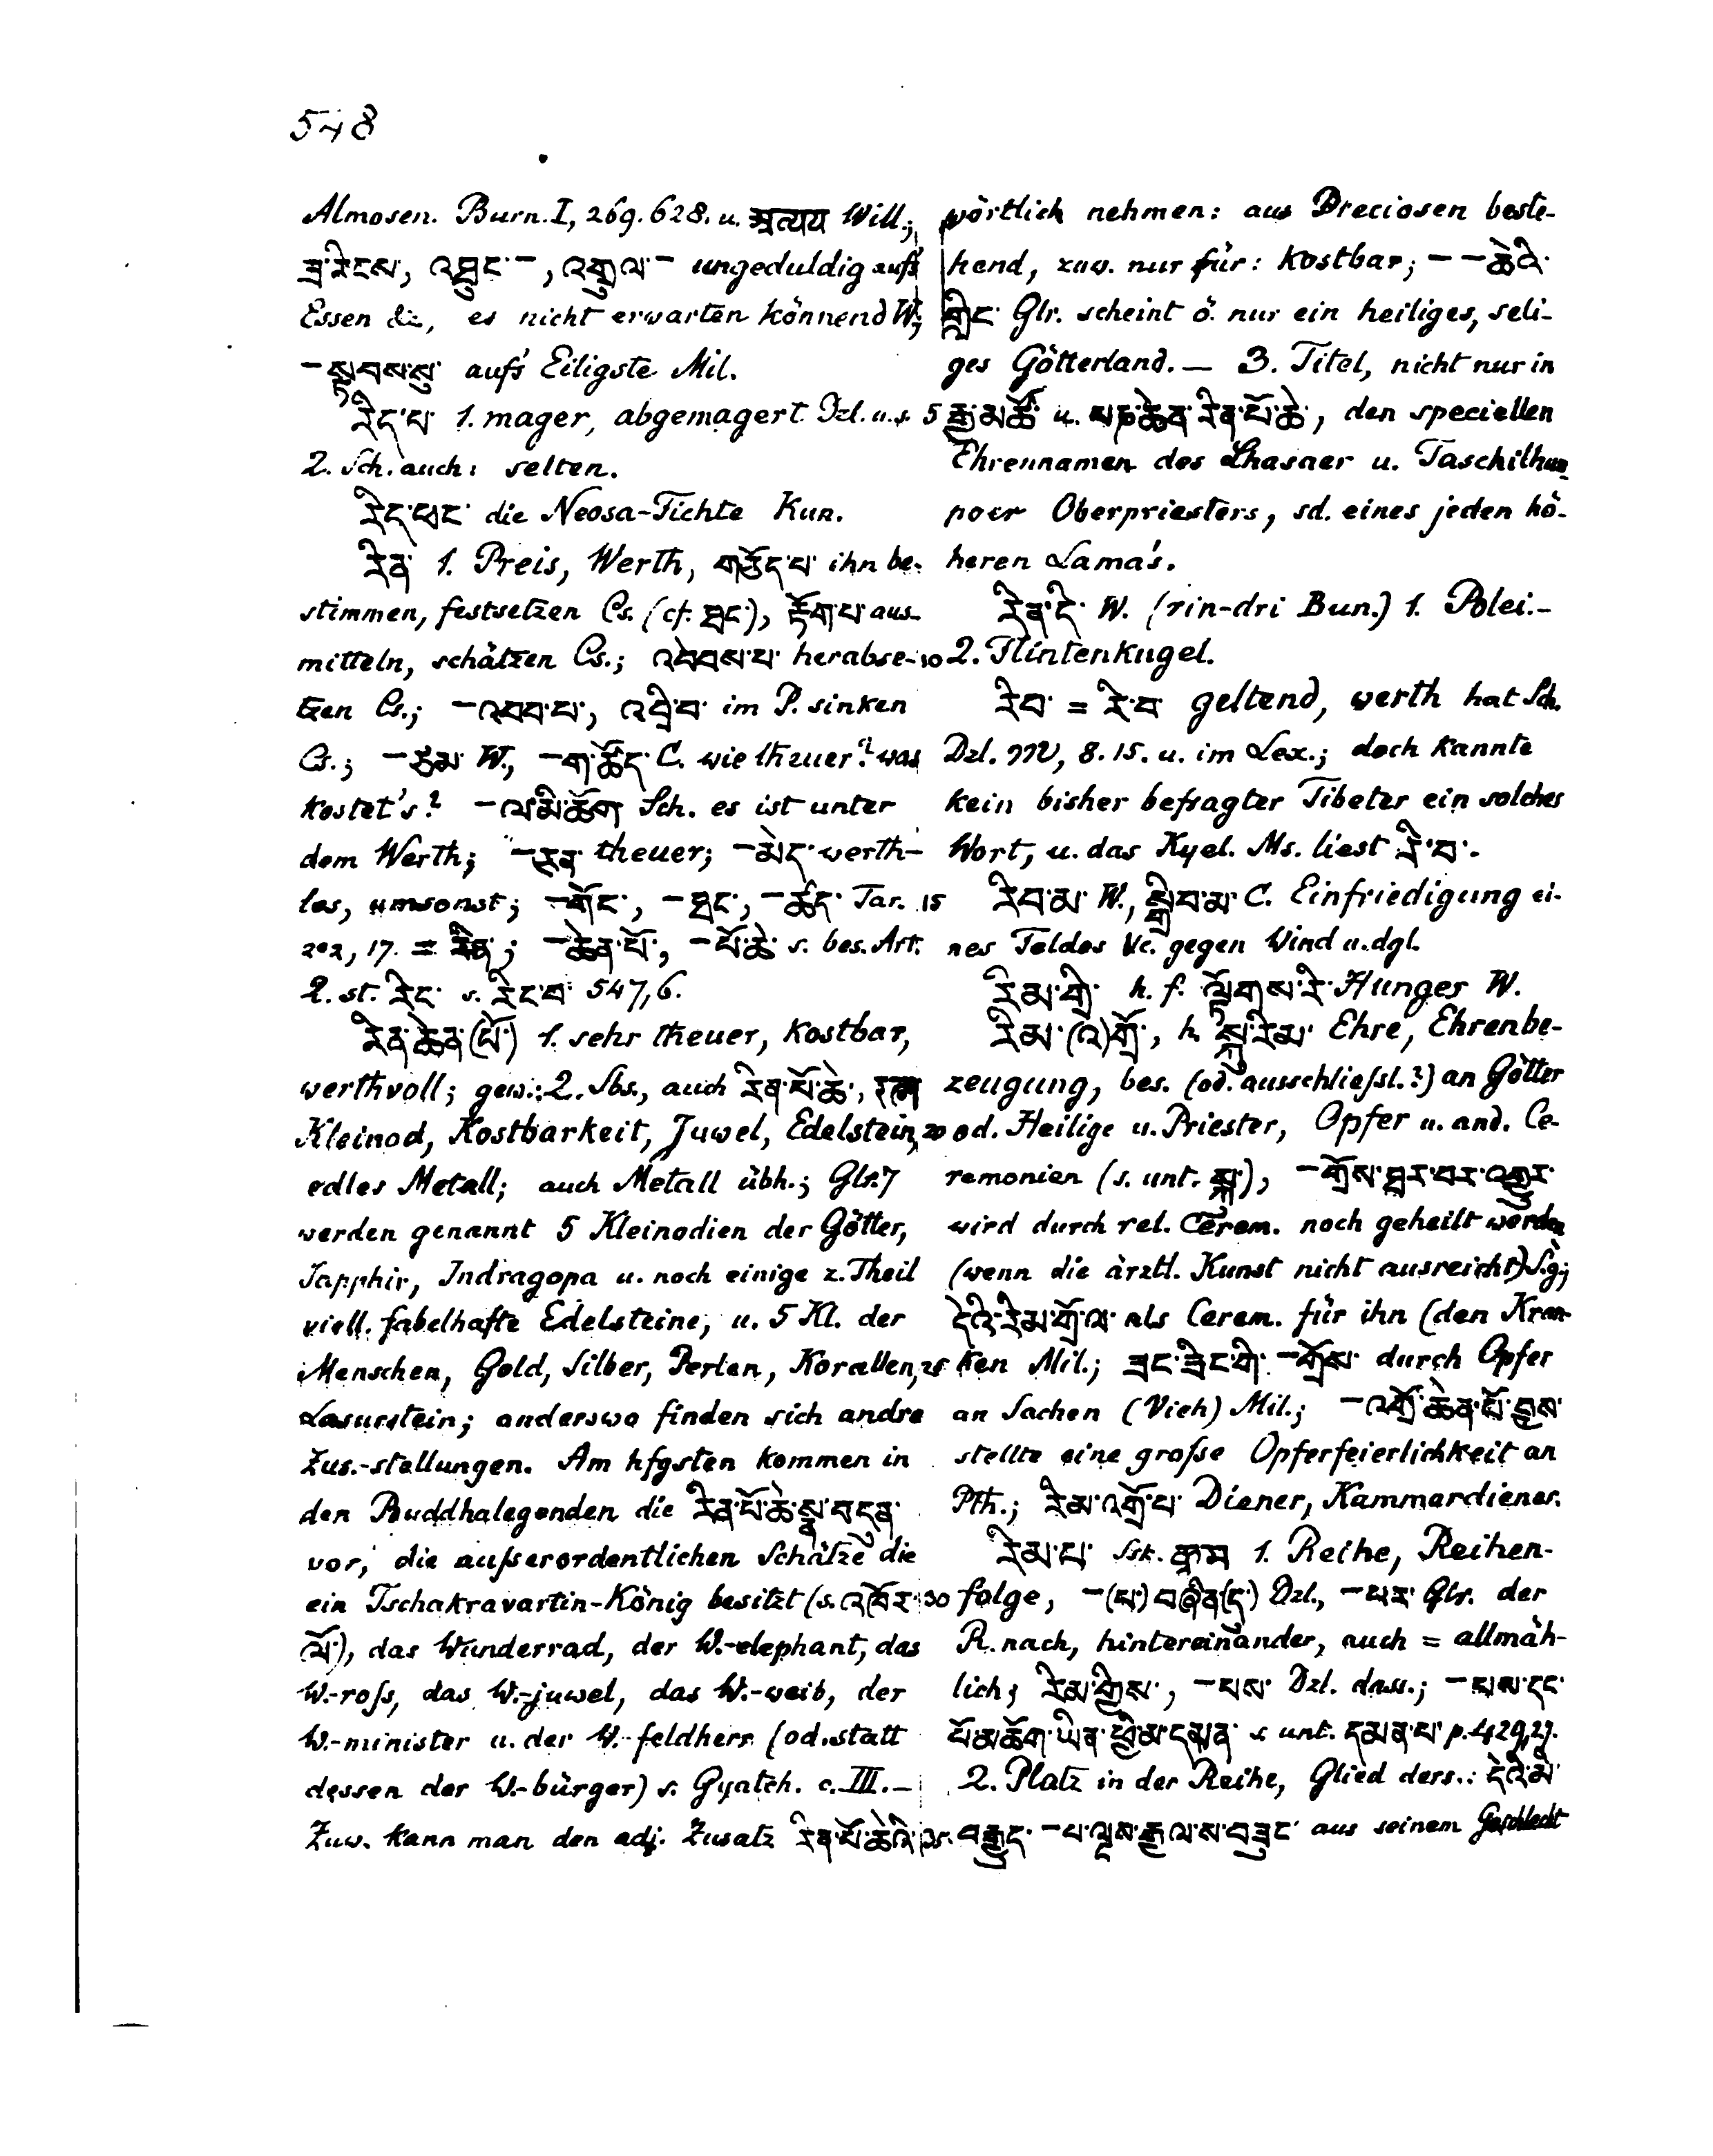 548
Almosen. Burn. I, 269. 628. u. प्रत्यय Will.;
ཟ་རིངས་, འཐུང་ –, འགུལ་ – ungeduldig aufs
Essen &c, es nicht erwarten könnend W.;
– སྟབས་སུ་ aufs Eiligste Mil.
རིད་པ་ 1. mager, abgemagert Dzl. u.s.
2. Sch. auch: selten.
རིད་ཕང་ die Neosa-Fichte Kun.
རིན་ 1. Preis, Werth, གཅོད་པ་ ihn be-
stimmen, festsetzen Cs. (cf. ཐང་), རྟོག་པ་ aus-
mitteln, schätzen Cs.; འབེབས་པ་ herabse-
tzen Cs.; – འབབ་པ་, འབྲི་བ་ im P. sinken
Cs.; – ཙམ་ W., – ག་ཚོད་ C. wie theuer? was
kostet's? – ལ་མི་ཆོག Sch. es ist unter
dem Werth; – ཅན་ theuer; – མེད་ werth-
los, umsonst; – གོང་, – ཐང་, – ཚད་ Tar.
202, 17. = རིན་; – ཆེན་པོ་, – པོ་ཆེ་ s. bes. Art.
2. st. རིང་ s. རིང་བ་ 547,6.
རིན་ཆེན་(པོ་) 1. sehr theuer, kostbar,
werthvoll; gew.: 2. Sbs., auch རིན་པོ་ཆེ་, रत्न
Kleinod, Kostbarkeit, Juwel, Edelstein, 20
edles Metall; auch Metall übh.; Glr. 7
werden genannt 5 Kleinodien der Götter,
Sapphir, Indragopa u. noch einige z. Theil
viell. fabelhafte Edelsteine, u. 5 Kl. der
Menschen, Gold, Silber, Perlen, Korallen, 25
Lasurstein; anderswo finden sich andre
Zus.-stellungen. Am hfgsten kommen in
den Buddhalegenden die རིན་པོ་ཆེ་སྣ་བདུན་
vor, die außerordentlichen Schätze die
ein Tschakravartin-König besitzt (s. འཁོར་ 30
ལོ་), das Wunderrad, der W.-elephant, das
W.-roß, das W.-juwel, das W.-weib, der
W.-minister u. der W.-feldherr (od. statt
dessen der W.-bürger) s. Gyatch. c. III. –
Zuw. kann man den adj. Zusatz རིན་པོ་ཆེའི་ 35
wörtlich nehmen: aus Preciosen beste-
hend, zuw. nur für: kostbar; – – ཆེའི་
གླིང་ Glr. scheint ö. nur ein heiliges, seli-
ges Götterland. – 3. Titel, nicht nur in
5 རྒྱ་མཚོ་ u. པཎ་ཆེན་རིན་པོ་ཆེ་, den speciellen
Ehrennamen des Lhasaer u. Taschilhun-
poer Oberpriesters, sd. eines jeden hö-
heren Lama's.
རིན་དི་ W. (rin-dri Bun.) 1. Blei. –
10 2. Flintenkugel.
རིབ་ = རི་བ་ geltend, werth hat Sch.
Dzl. 𝈲V, 8. 15. u. im Lex.; doch kannte
kein bisher befragter Tibeter ein solches
Wort, u. das Kyel. Ms. liest རི་བ་.
15 རིབ་མ་ W., སྒྲིབ་མ་ C. Einfriedigung ei-
nes Feldes &c. gegen Wind u. dgl.
རིམ་གྲི་ h. f. ལྟོགས་རི་ Hunger W.
རིམ་(འ)གྲོ་, h. སྐུ་རིམ་ Ehre, Ehrenbe-
zeugung, bes. (od. ausschließl.?) an Götter
od. Heilige u. Priester, Opfer u. and. Ce-
remonien (s. unt. སྐུ་), – གྲོས་ཐར་བར་འགྱུར་
wird durch rel. Cerem. noch geheilt werden
(wenn die ärztl. Kunst nicht ausreicht) S.g.;
དེའི་རིམ་གྲོ་ལ་ als Cerem. für ihn (den Kran-
ken Mil.; ཟང་ཟིང་གི་ – གྲོས་ durch Opfer
an Sachen (Vieh) Mil.; – འགྲོ་ཆེན་པོ་བྱས་
stellte eine große Opferfeierlichkeit an
Pth.; རིམ་འགྲོ་པ་ Diener, Kammerdiener.
རིམ་པ་ Ssk. क्रम 1. Reihe, Reihen-
folge, – (པ་)བཞིན་(དུ་) Dzl., – པར་ Glr. der
R. nach, hintereinander, auch = allmäh-
lich; རིམ་གྱིས་, – པས་ Dzl. dass.; – པས་དང་
པོ་མཆོག་ཡིན་ཕྱི་མ་དམན་ s. unt. དམན་པ་ p. 429, 21.
2. Platz in der Reihe, Glied ders.: དེའི་མི་
བརྒྱུད་ – པ་ལྔས་རྒྱལ་ས་བཟུང་ aus seinem Geschlecht